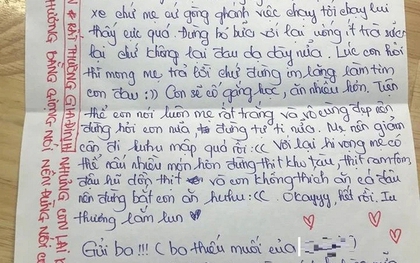 xe chứ mẹ cứ gồng gánh việc chạy tới chạy lui
thấy cực quá. Đừng bỏ bữa với lại uống ít trà sữa
lại chứ không lại đau dạ dày nữa. Lúc con hỏi
thì mong mẹ trả lời chứ đừng im lặng làm tim
con đau :)) Con sẽ cố gắng học, ăn nhiều hơn. Tiện
thể con nói luôn mẹ rất trắng và vô cùng đẹp nên
đừng hỏi con nữa, đừng tự ti nữa. Mẹ nên giảm
cân đi huhu mập quá rồi :<< Với lại hi vọng mẹ có
thể nấu nhiều món hơn đừng thịt kho tàu, thịt ram tôm,
đậu hũ dồn thịt vì con không thích ăn cá đâu
nên đừng bắt con ăn huhu :<< Okayyy, hết rồi. Iu
thương lắm lun ♡
Gửi ba!!! (ba thiếu muối của
RẤT THƯƠNG GIA ĐÌNH NHƯNG CON LẠI
THƯƠNG BẰNG GIỌNG NÓI NÊN ĐỪNG NÓI